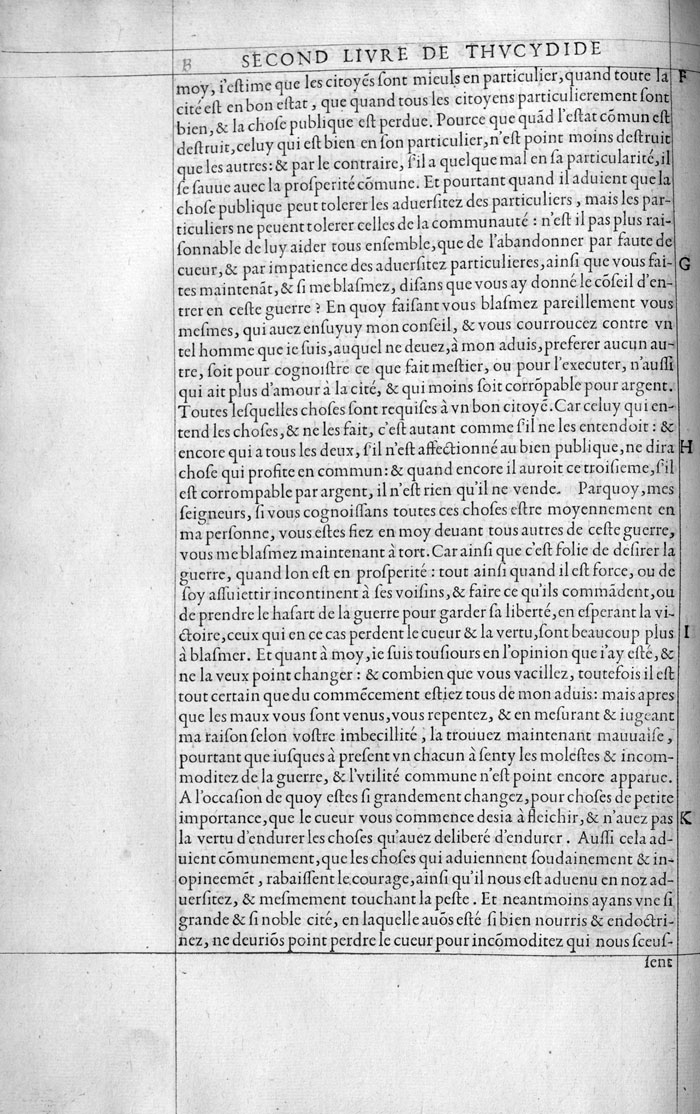 B SECOND LIVRE DE THVCYDIDE
moy, i'eſtime que les citoyẽs ſont mieuls en particulier, quand toute la F
cité eſt en bon eſtat, que quand tous les citoyens particulierement ſont
bien, & la choſe publique eſt perdue. Pource que quãd l'eſtat cõmun eſt
deſtruit, celuy qui eſt bien en ſon particulier, n'eſt point moins deſtruit
que les autres: & par le contraire, ſ'il a quelque mal en ſa particularité, il
ſe ſauue auec la proſperité cõmune. Et pourtant quand il aduient que la
choſe publique peut tolerer les aduerſitez des particuliers, mais les par-
ticuliers ne peuent tolerer celles de la communauté: n'eſt il pas plus rai-
ſonnable de luy aider tous enſemble, que de l'abandonner par faute de
cueur, & par impatience des aduerſitez particulieres, ainſi que vous fai- G
tes maintenãt, & ſi me blaſmez, diſans que vous ay donné le cõſeil d'en-
trer en ceſte guerre? En quoy faiſant vous blaſmez pareillement vous
meſmes, qui auez enſuyuy mon conſeil, & vous courroucez contre vn
tel homme que ie ſuis, auquel ne deuez, à mon aduis, preferer aucun au-
tre, ſoit pour cognoiſtre ce que fait meſtier, ou pour l'executer, n'auſſi
qui ait plus d'amour à la cité, & qui moins ſoit corrõpable pour argent.
Toutes leſquelles choſes ſont requiſes à vn bon citoyẽ. Car celuy qui en-
tend les choſes, & ne les fait, c'eſt autant comme ſ'il ne les entendoit: &
encore qui a tous les deux, ſ'il n'eſt affectionné au bien publique, ne dira H
choſe qui profite en commun: & quand encore il auroit ce troiſieme, ſ'il
eſt corrompable par argent, il n'eſt rien qu'il ne vende. Parquoy, mes
ſeigneurs, ſi vous cognoiſſans toutes ces choſes eſtre moyennement en
ma perſonne, vous eſtes fiez en moy deuant tous autres de ceſte guerre,
vous me blaſmez maintenant à tort. Car ainſi que c'eſt folie de deſirer la
guerre, quand lon eſt en proſperité: tout ainſi quand il eſt force, ou de
ſoy aſſuiettir incontinent à ſes voiſins, & faire ce qu'ils commãdent, ou
de prendre le haſart de la guerre pour garder ſa liberté, en eſperant la vi-
ctoire, ceux qui en ce cas perdent le cueur & la vertu, ſont beaucoup plus I
à blaſmer. Et quant à moy, ie ſuis touſiours en l'opinion que i'ay eſté, &
ne la veux point changer: & combien que vous vacillez, toutefois il eſt
tout certain que du commẽcement eſtiez tous de mon aduis: mais apres
que les maux vous ſont venus, vous repentez, & en meſurant & iugeant
ma raiſon ſelon voſtre imbecillité, la trouuez maintenant mauuaiſe,
pourtant que iuſques à preſent vn chacun à ſenty les moleſtes & incom-
moditez de la guerre, & l'vtilité commune n'eſt point encore apparue.
A l'occaſion de quoy eſtes ſi grandement changez, pour choſes de petite
importance, que le cueur vous commence desia à fleichir, & n'auez pas K
la vertu d'endurer les choſes qu'auez deliberé d'endurer. Auſſi cela ad-
uient cõmunement, que les choſes qui aduiennent ſoudainement & in-
opineemẽt, rabaiſſent le courage, ainſi qu'il nous eſt aduenu en noz ad-
uerſitez, & meſmement touchant la peſte. Et neantmoins ayans vne ſi
grande & ſi noble cité, en laquelle auõs eſté ſi bien nourris & endoctri-
nez, ne deuriõs point perdre le cueur pour incõmoditez qui nous ſceuſ-
ſent